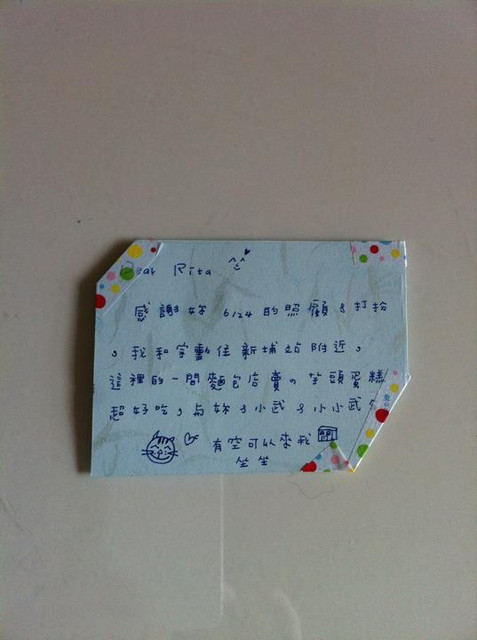 Dear Rita
感謝妳 6/24 的照顧&打扮
，我和宇勳住新埔站附近，
這裡的一間麵包店賣的芋頭蛋糕
超好吃，與妳&小武&小小武
有空可以來我
坐坐